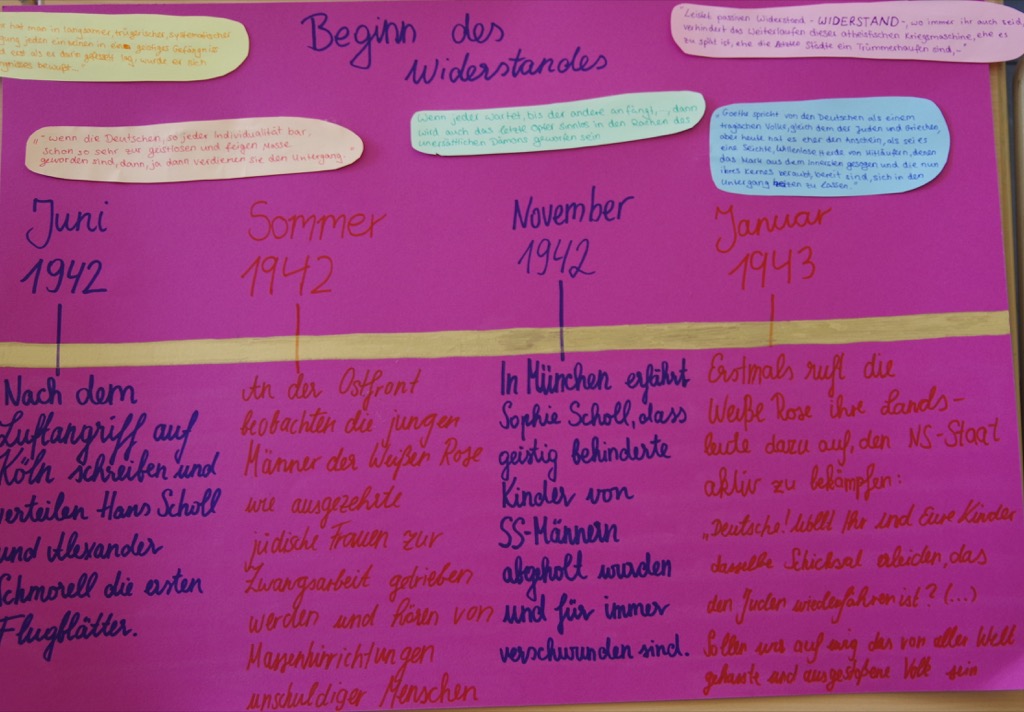 hat man in langsamer, trügerischer, systematischer
jeden einzelnen in ein geistiges Gefängnis
erst als er darin gefesselt lag, wurde er sich
bewußt..."
Beginn des
Widerstandes
"Leistet passiven Widerstand - WIDERSTAND -, wo immer ihr auch seid,
verhindert das Weiterlaufen dieses atheistischen Kriegsmaschine, ehe es
zu spät ist, ehe die Städte ein Trümmerhaufen sind,..."
"Wenn die Deutschen, so jeder Individualität bar,
schon so sehr zur geistlosen und feigen Masse
geworden sind, dann, ja dann verdienen sie den Untergang."
Wenn jeder wartet, bis der andere anfängt,..., dann
wird auch das letzte Opfer sinnlos in den Rachen des
unersättlichen Dämons geworfen sein
"Goethe spricht von den Deutschen als einem
tragischen Volke, gleich dem der Juden und Griechen,
aber heute hat es eher den Anschein, als sei es
eine Seichte, Willenlose Herde von Mitläufern, denen
das Mark aus dem Innersten gesogen und die nun
ihres Kernes beraubt, bereit sind, sich in den
Untergang hetzen zu lassen."
Juni
1942
Nach dem
Luftangriff auf
Köln schreiben und
verteilen Hans Scholl
und Alexander
Schmorell die ersten
Flugblätter.
Sommer
1942
An der Ostfront
beobachten die jungen
Männer der Weißen Rose
wie ausgezehrte
jüdische Frauen zur
Zwangsarbeit getrieben
werden und hören von
Massenhinrichtungen
unschuldiger Menschen
November
1942
In München erfährt
Sophie Scholl, dass
geistig behinderte
Kinder von
SS-Männern
abgeholt wurden
und für immer
verschwunden sind.
Januar
1943
Erstmals ruft die
Weiße Rose ihre Lands-
leute dazu auf, den NS-Staat
aktiv zu bekämpfen:
"Deutsche! Wollt Ihr und Eure Kinder
dasselbe Schicksal erleiden, das
den Juden wiederfahren ist? (...)
Sollen wir auf ewig das von aller Welt
gehasste und ausgestoßene Volk sein